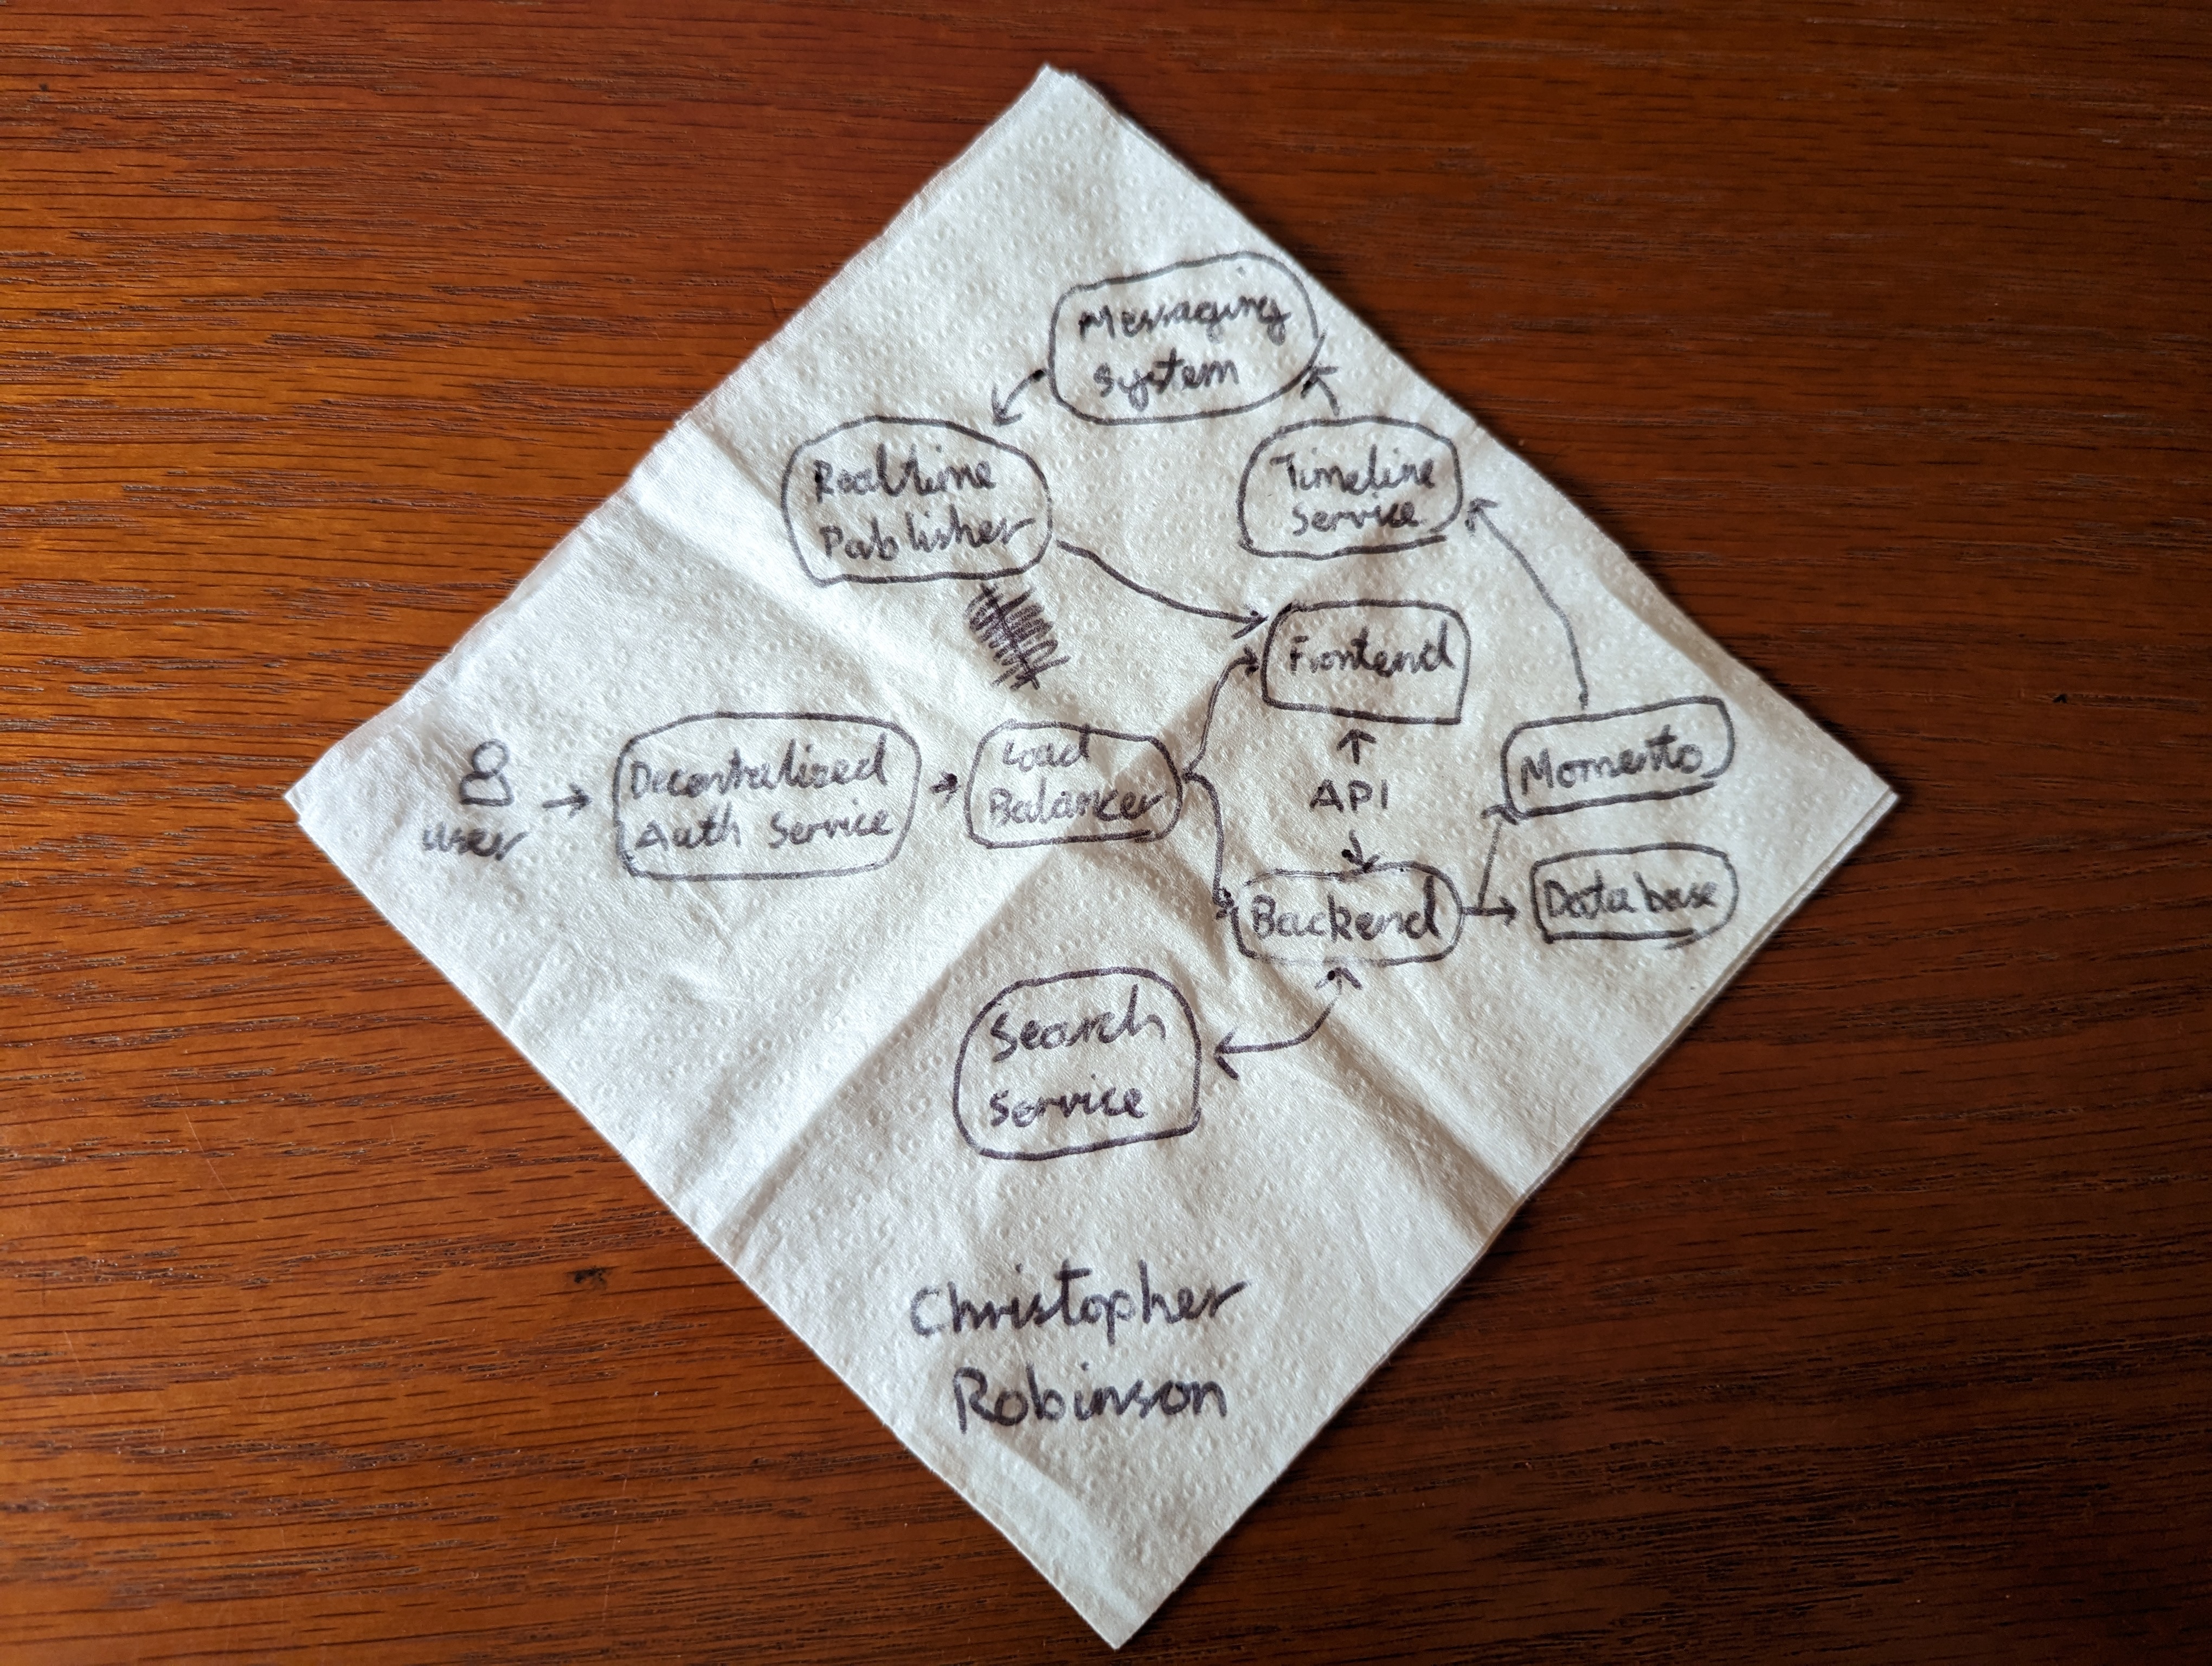 Messaging
System
Realtime
Publisher
Timeline
Service
Frontend
user
Decentralized
Auth Service
Load
Balancer
API
Momento
Backend
Database
Search
Service
Christopher
Robinson